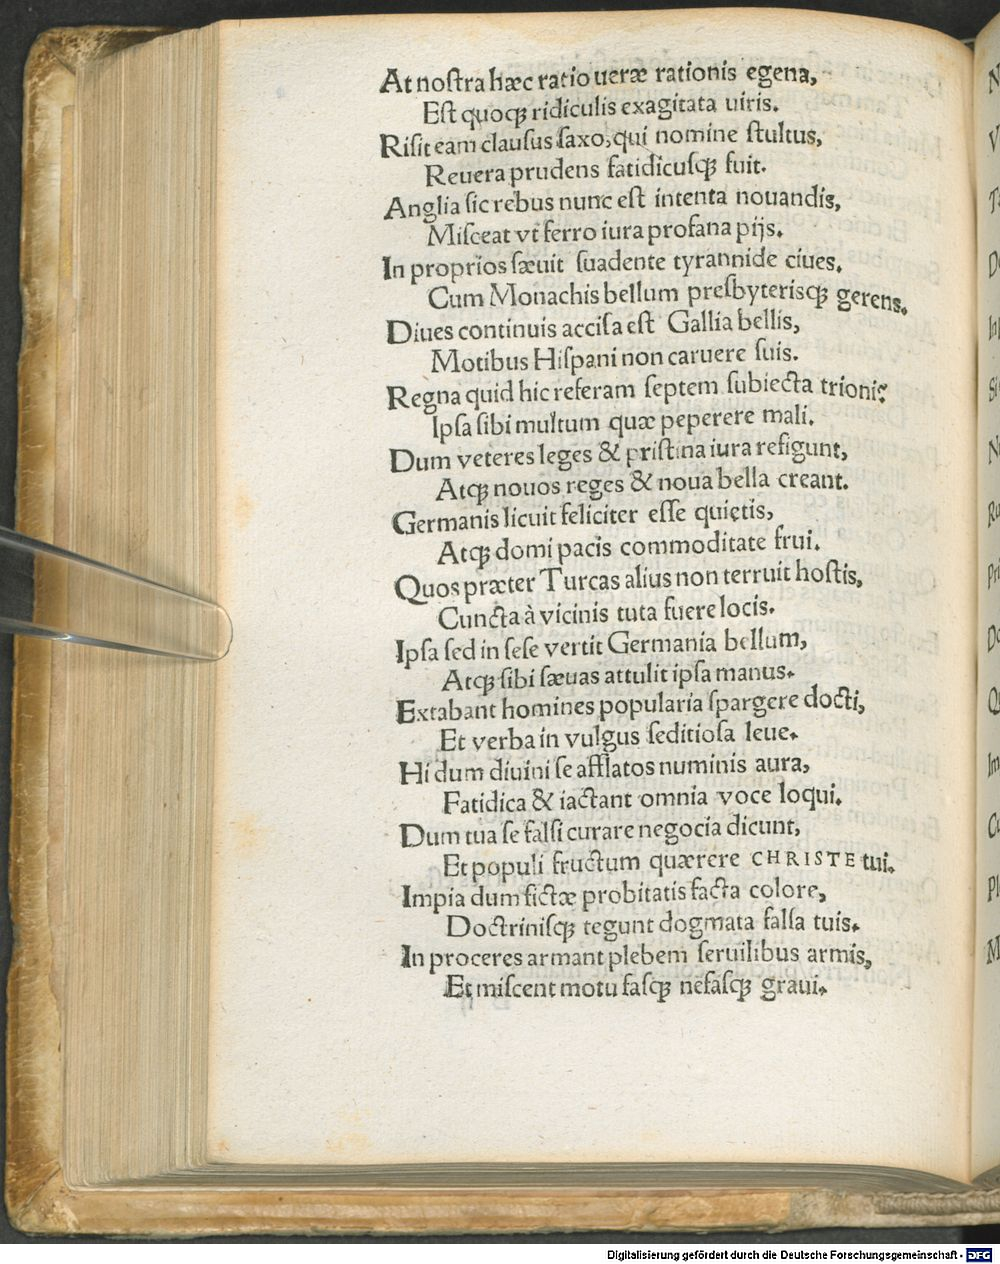 At noſtra hæc ratio ueræ rationis egena,
Eſt quoqꝫ ridiculis exagitata uiris.
Riſit eam clauſus ſaxo, qui nomine ſtultus,
Reuera prudens fatidicuſqꝫ fuit.
Anglia ſic rebus nunc eſt intenta nouandis,
Miſceat vt ferro iura profana pijs.
In proprios ſæuit ſuadente tyrannide ciues,
Cum Monachis bellum preſbyteriſqꝫ gerens.
Diues continuis acciſa eſt Gallia bellis,
Motibus Hiſpani non caruere ſuis.
Regna quid hic referam ſeptem ſubiecta trioni?
Ipſa ſibi multum quæ peperere mali.
Dum veteres leges & priſtina iura refigunt,
Atqꝫ nouos reges & noua bella creant.
Germanis licuit feliciter eſſe quietis,
Atqꝫ domi pacis commoditate frui.
Quos præter Turcas alius non terruit hoſtis,
Cuncta à vicinis tuta fuere locis.
Ipſa ſed in ſeſe vertit Germania bellum,
Atqꝫ ſibi ſæuas attulit ipſa manus.
Extabant homines popularia ſpargere docti,
Et verba in vulgus ſeditioſa leue.
Hi dum diuini ſe afflatos numinis aura,
Fatidica & iactant omnia voce loqui.
Dum tua ſe falſi curare negocia dicunt,
Et populi fructum quærere CHRISTE tui.
Impia dum fictæ probitatis facta colore,
Doctriniſqꝫ tegunt dogmata falſa tuis.
In proceres armant plebem ſeruilibus armis,
Et miſcent motu faſqꝫ nefaſqꝫ graui.
Digitalisierung gefördert durch die Deutsche Forschungsgemeinschaft - DFG